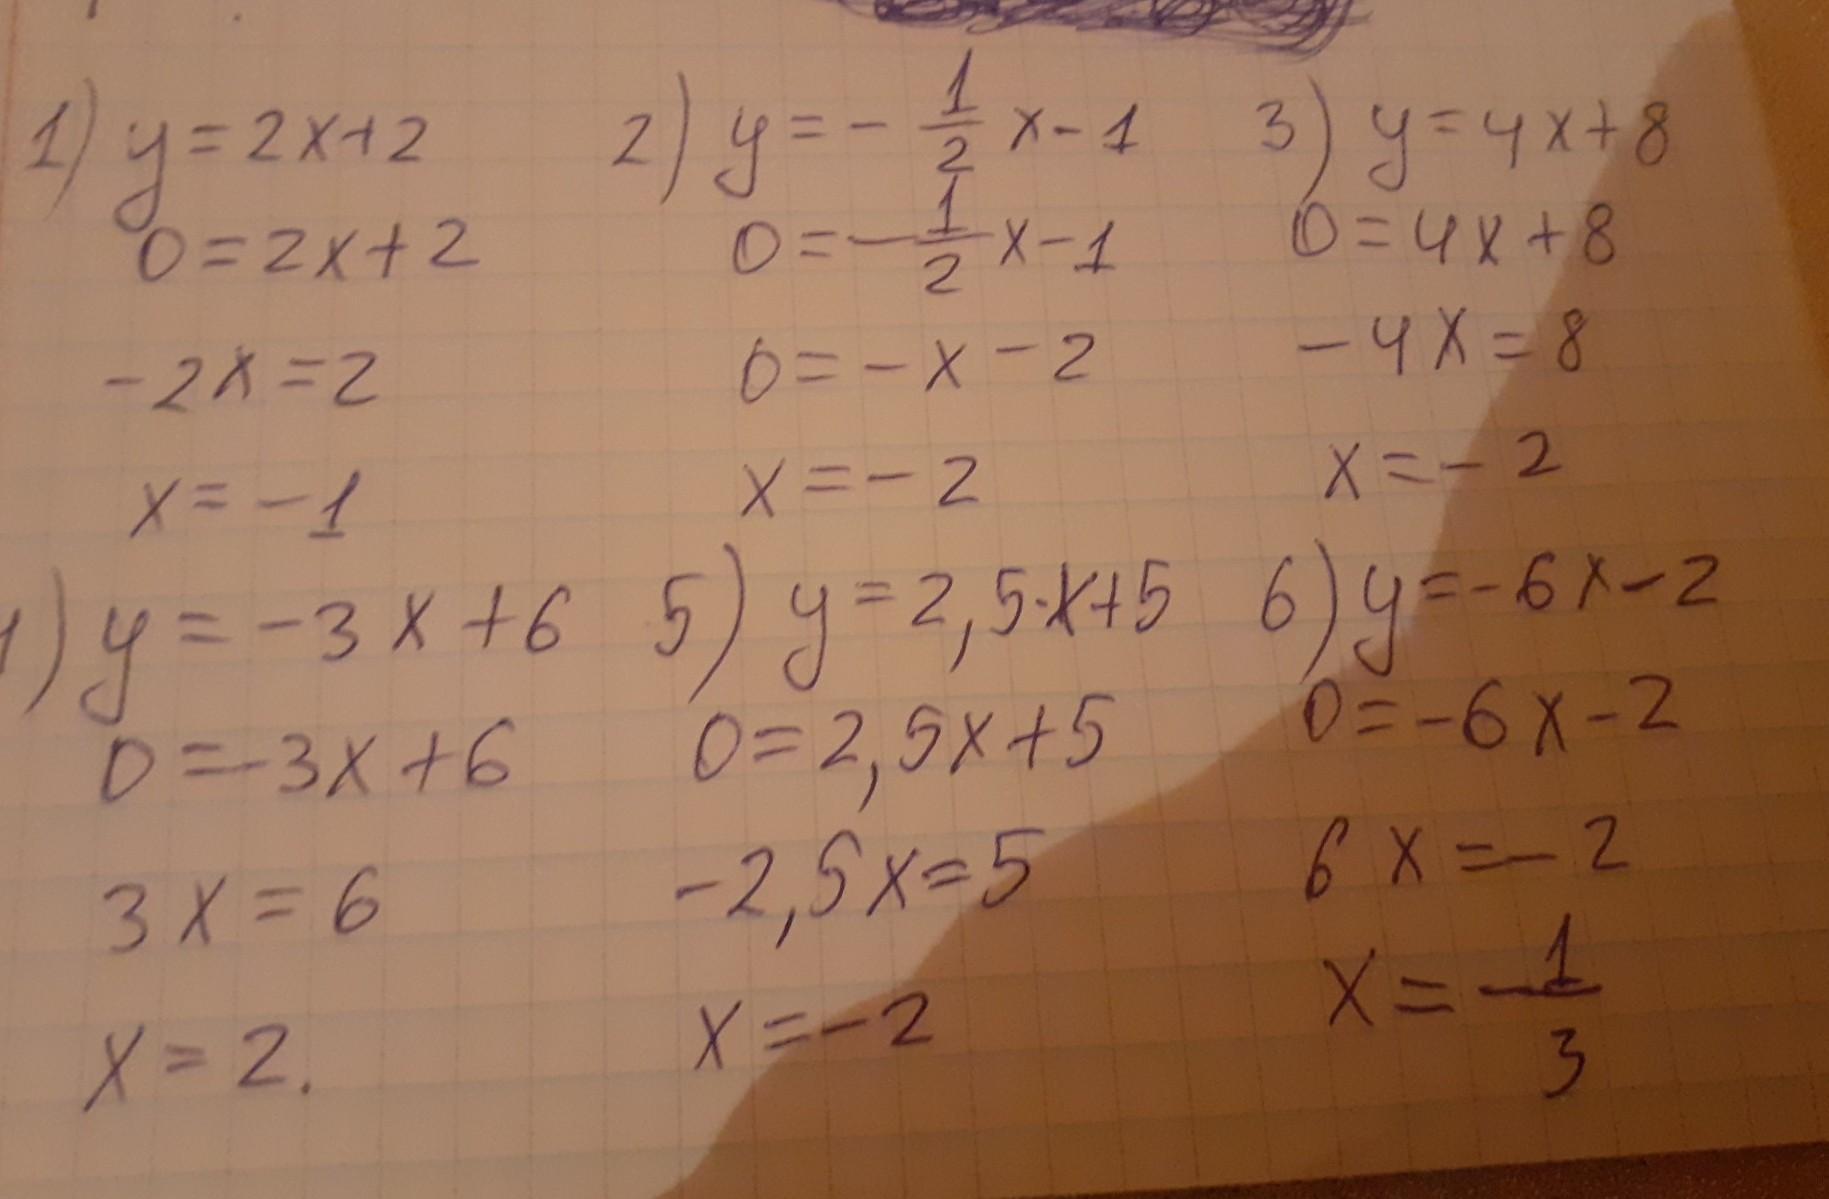 1) y=2x+2
0=2x+2
-2x=2
x=-1
2) y=-1/2 x-1
0=-1/2 x-1
0=-x-2
x=-2
3) y=4x+8
0=4x+8
-4x=8
x=-2
) y=-3x+6
0=-3x+6
3x=6
x=2.
5) y=2,5·x+5
0=2,5x+5
-2,5x=5
x=-2
6) y=-6x-2
0=-6x-2
6x=-2
x=-1/3